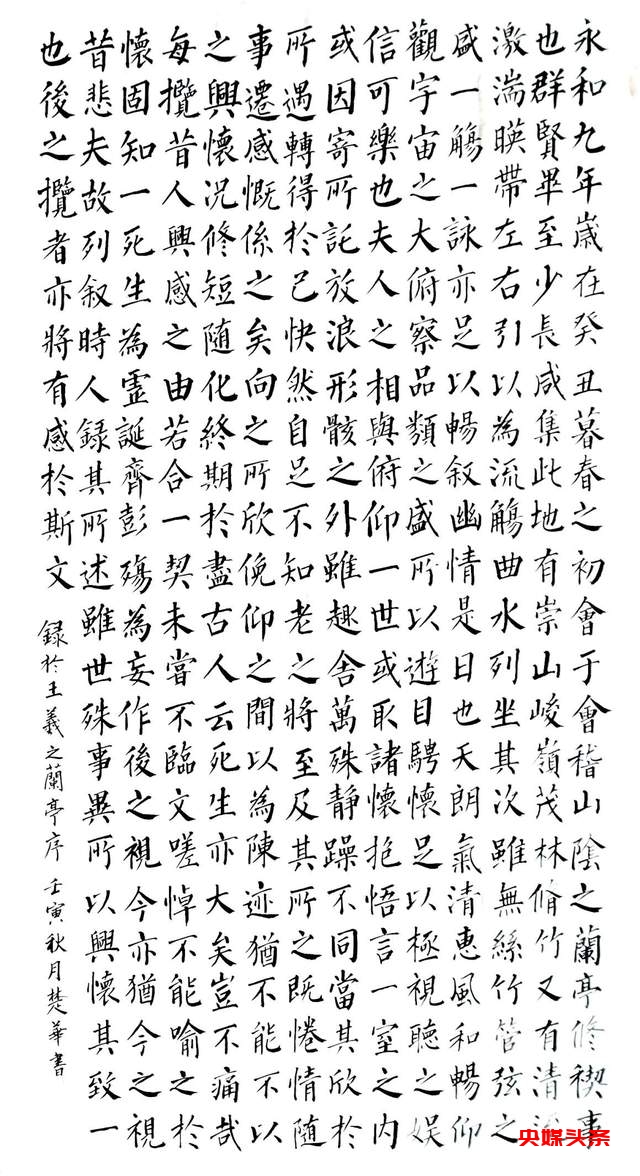 永和九年歲在癸丑暮春之初會于會稽山陰之蘭亭修禊事
也群賢畢至少長咸集此地有崇山峻嶺茂林脩竹又有清流
激湍暎帶左右引以為流觴曲水列坐其次雖無絲竹管弦之
盛一觴一詠亦足以暢叙幽情是日也天朗氣清惠風和暢仰
觀宇宙之大俯察品類之盛所以遊目騁懷足以極視聽之娛
信可樂也夫人之相與俯仰一世或取諸懷抱悟言一室之内
或因寄所託放浪形骸之外雖趣舍萬殊静躁不同當其欣於
所遇轉得於己快然自足不知老之將至及其所之既惓情隨
事遷感慨係之矣向之所欣俛仰之間以為陳迹猶不能不以
之興懷况修短隨化終期於盡古人云死生亦大矣豈不痛哉
每攬昔人興感之由若合一契未嘗不臨文嗟悼不能喻之於
懷固知一死生為虛誕齊彭殤為妄作後之視今亦猶今之視
昔悲夫故列叙時人録其所述雖世殊事異所以興懷其致一
也後之攬者亦將有感於斯文
録於王羲之蘭亭序 壬寅秋月楚華書
央媒头条